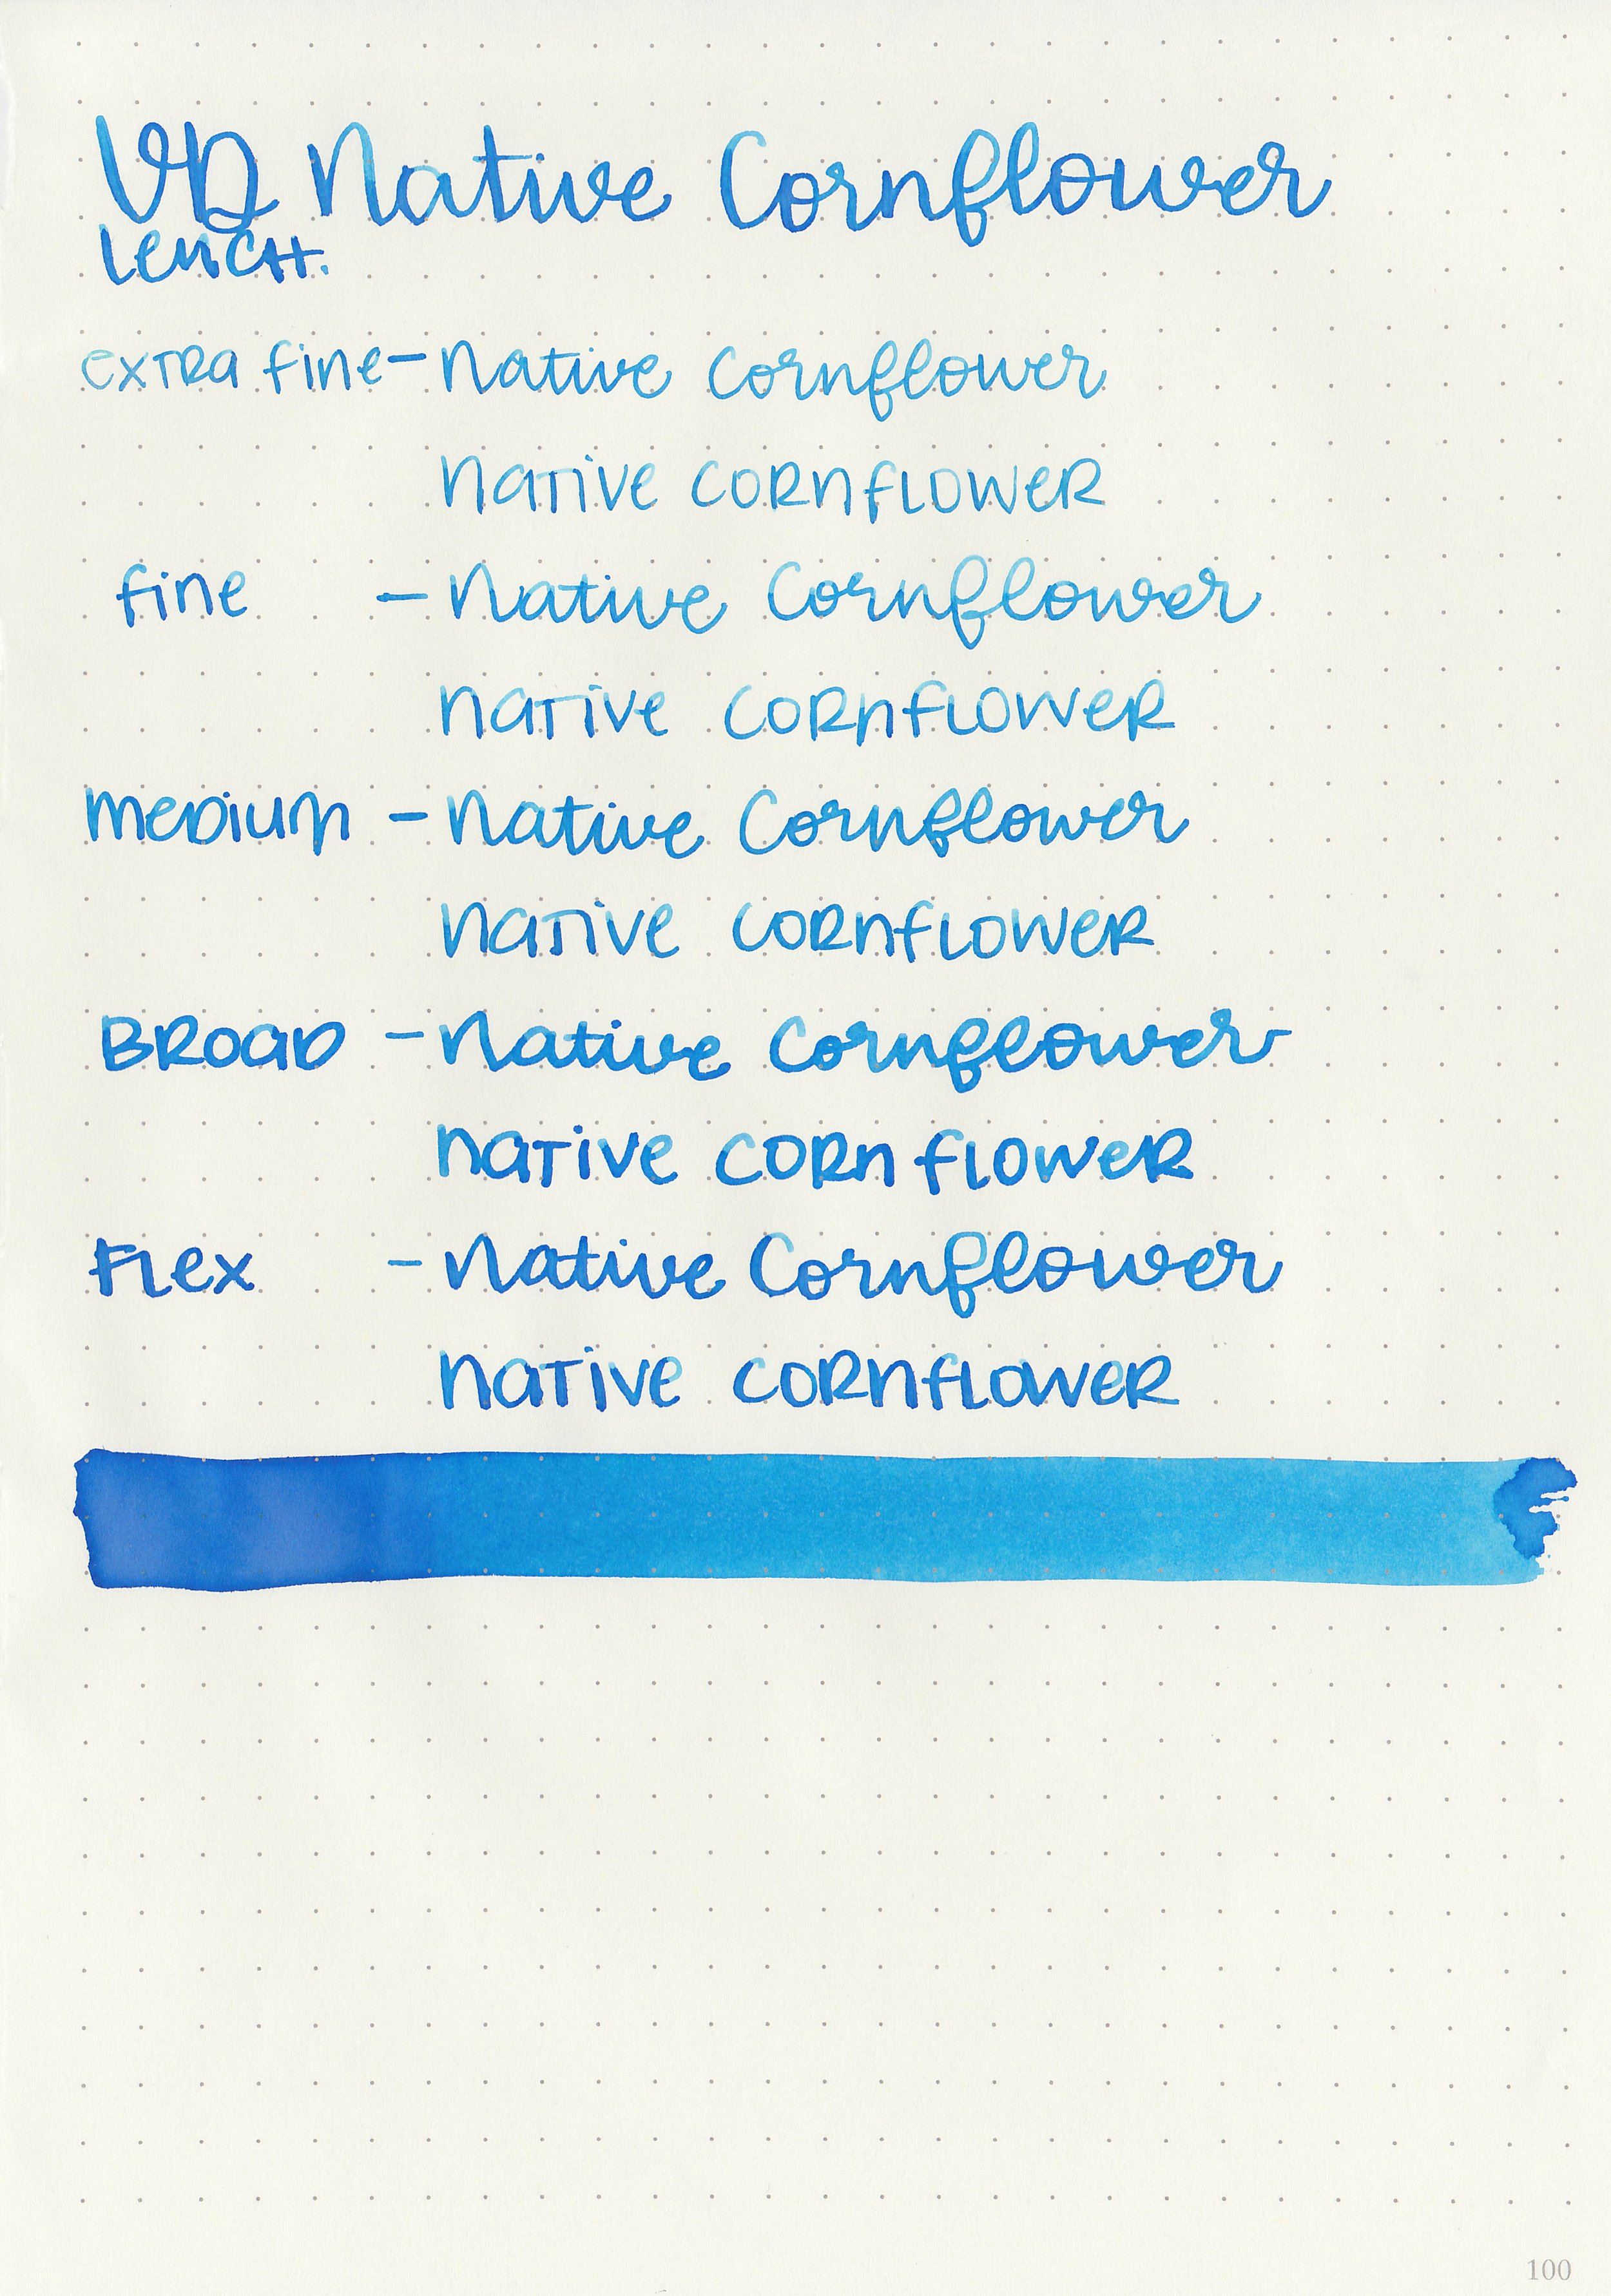 VD Native Cornflower
Lencht.
extra fine - Native Cornflower
native cornflower
fine - Native Cornflower
native cornflower
medium - Native Cornflower
native cornflower
Broad - Native Cornflower
native cornflower
Flex - Native Cornflower
native cornflower
100